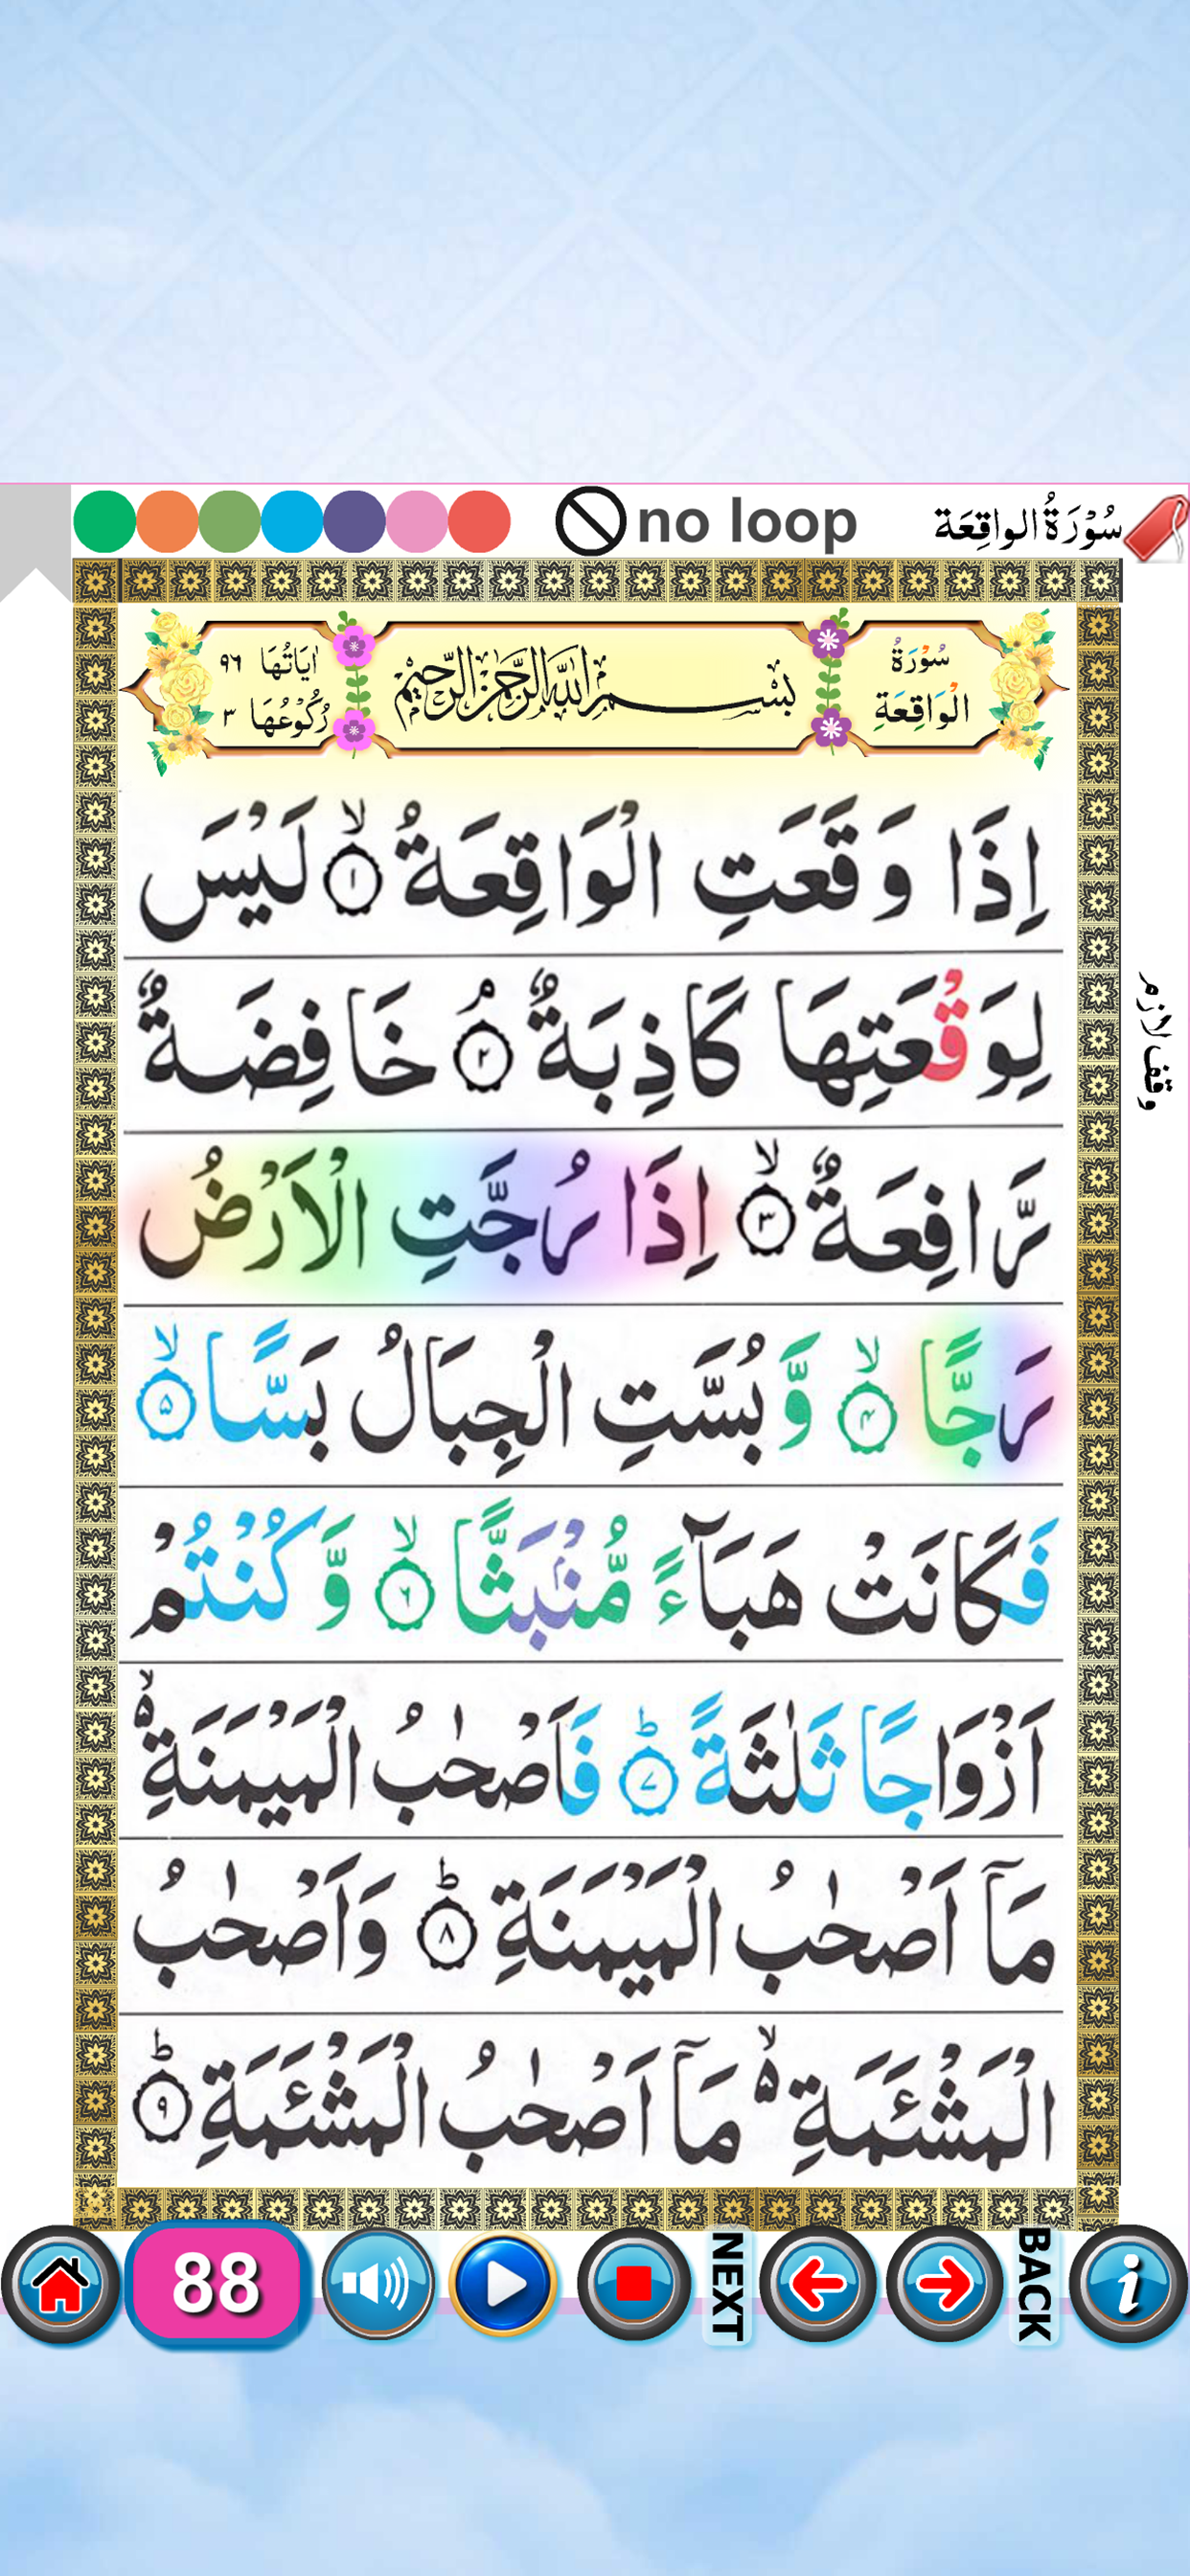 no loop
سُوْرَةُ الواقِعَة
سُوْرَةُ الْوَاقِعَةِ
بِسْمِ اللّٰهِ الرَّحْمٰنِ الرَّحِيْمِ
اٰيَاتُهَا ٩٦
رُكُوْعُهَا ٣
اِذَا وَقَعَتِ الْوَاقِعَةُ ۙ ١ لَيْسَ
لِوَقْعَتِهَا كَاذِبَةٌ ۘ ٢ خَافِضَةٌ
وقف لازم
رَّافِعَةٌ ۙ ٣ اِذَا رُجَّتِ الْاَرْضُ
رَجًّا ۙ ۴ وَّ بُسَّتِ الْجِبَالُ بَسًّا ۙ ۵
فَكَانَتْ هَبَآءً مُّنْۢبَثًّا ۙ ۶ وَّ كُنْتُمْ
اَزْوَاجًا ثَلٰثَةً ؕ ٧ فَاَصْحٰبُ الْمَيْمَنَةِ ۙ۬
مَاۤ اَصْحٰبُ الْمَيْمَنَةِ ؕ ٨ وَاَصْحٰبُ
الْمَشْـَٔمَةِ ۙ۬ مَاۤ اَصْحٰبُ الْمَشْـَٔمَةِ ؕ ٩
88
NEXT
BACK
i